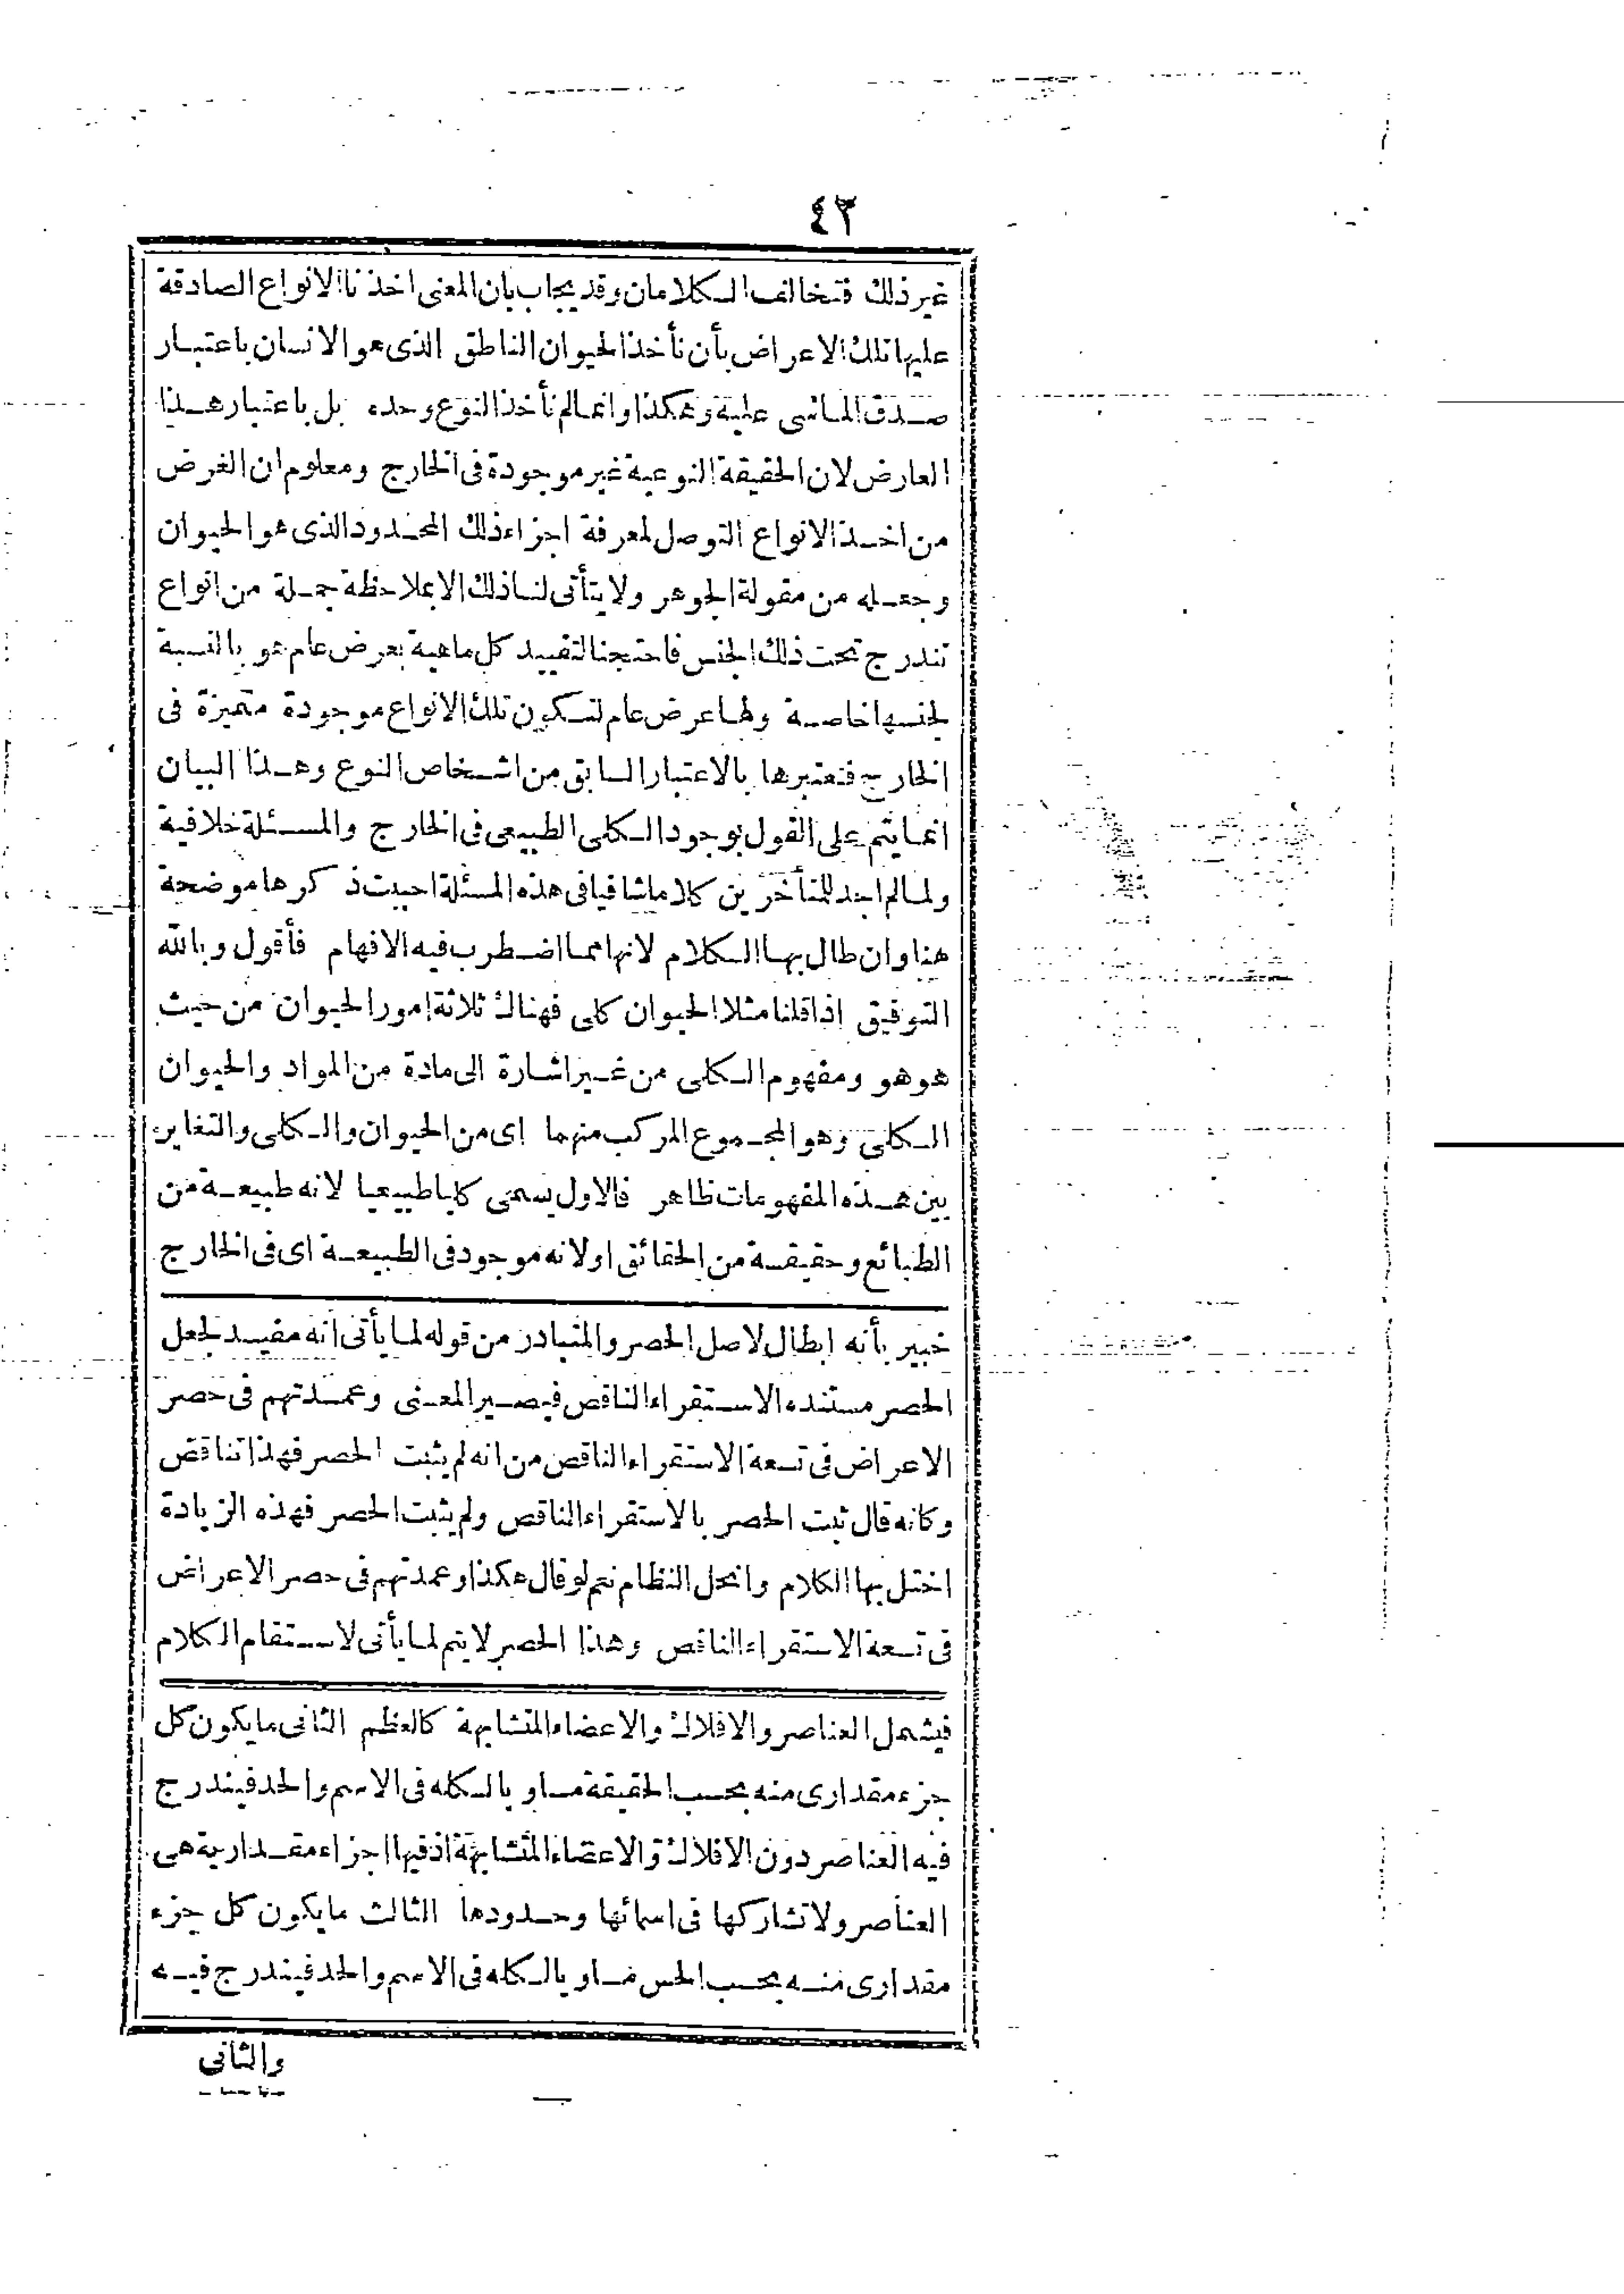 ٤٣
غير ذلك فتخالف الكلامان وقد يجاب بان المعنى اخذنا الانواع الصادقة
عليها تلك الاعراض بأن نأخذ الحيوان الناطق الذى هو الانسان باعتبار
صدق الماشى عليه وهكذا وانما لم نأخذ النوع وحده بل باعتبار هذا
العارض لان الحقيقة النوعية غير موجودة فى الخارج ومعلوم ان الغرض
من اخذ الانواع التوصل لمعرفة اجزاء ذلك المحدود الذى هو الحيوان
وجعله من مقولة الجوهر ولا يتأتى لنا ذلك الا بملاحظة جملة من انواع
تندرج تحت ذلك الجنس فاحتجنا لتقييد كل ماهية بعرض عام هو بالنسبة
لجنسها خاصة ولها عرض عام لتكون تلك الانواع موجودة متميزة فى
الخارج فنعتبرها بالاعتبار السابق من اشخاص النوع وهذا البيان
انما يتم على القول بوجود الكلى الطبيعى فى الخارج والمسئلة خلافية
ولما لم اجد للمتأخرين كلاما شافيا فى هذه المسئلة احببت ذكرها موضحة
هنا وان طال بها الكلام لانها مما اضطرب فيه الافهام فأقول وبالله
التوفيق اذا قلنا مثلا الحيوان كلى فهناك ثلاثة امور الحيوان من حيث
هو هو ومفهوم الكلى من غير اشارة الى مادة من المواد والحيوان
الكلى وهو المجموع المركب منهما اى من الحيوان والكلى والتغاير
بين هذه المفهومات ظاهر فالاول يسمى كليا طبيعيا لانه طبيعة من
الطبائع وحقيقة من الحقائق او لانه موجود فى الطبيعة اى فى الخارج
خبير بأنه ابطال لاصل الحصر والمتبادر من قوله لما يأتى انه مفيد لجعل
الحصر مستنده الاستقراء الناقص فيصير المعنى وعمدتهم فى حصر
الاعراض فى تسعة الاستقراء الناقص من انه لم يثبت الحصر فهذا تناقض
وكانه قال ثبت الحصر بالاستقراء الناقص ولم يثبت الحصر فهذه الزيادة
اختل بها الكلام وانحل النظام نعم لو قال هكذا وعمدتهم فى حصر الاعراض
فى تسعة الاستقراء الناقص وهذا الحصر لا يتم لما يأتى لاستقام الكلام
فيشمل العناصر والافلاك والاعضاء المتشابهة كالعظم الثانى ما يكون كل
جزء مقدارى منه بحسب الحقيقة مساويا لكله فى الاسم والحد فيندرج
فيه العناصر دون الافلاك والاعضاء المتشابهة اذ فيها اجزاء مقدارية هى
العناصر ولا تشاركها فى اسمائها وحدودها الثالث ما يكون كل جزء
مقدارى منه بحسب الحس مساويا لكله فى الاسم والحد فيندرج فيه
والثانى